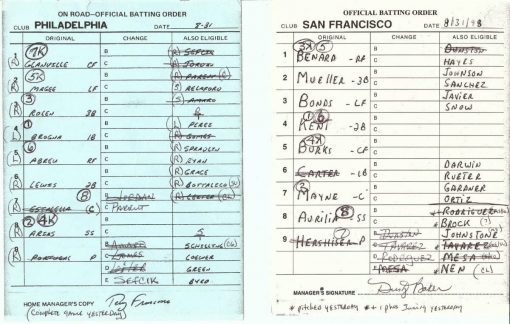 ON ROAD—OFFICIAL BATTING ORDER
CLUB PHILADELPHIA DATE 8-31
ORIGINAL CHANGE ALSO ELIGIBLE
7K
1 (R) GLANVILLE CF B (R) SEFCIK
C (R) JORDAN
5K
2 (R) MAGEE LF B (R) PARENT (C)
C (S) RELAFORD
3
3 (R) ROLEN 3B B (S) AMARO
C
1
4 (L) BROGNA 1B B (L) PEREZ
C (R) GOMES
6
5 (L) ABREU RF B (R) SPRADLIN
C (R) RYAN
6 (R) LEWIS 2B B (R) GRACE
C (R) BOTTALICO
8
7 ESTALELLA (C) B JORDAN (R) LEITER (CL)
C PARENT
2 4K
8 (R) ARIAS SS B
C S
9 (R) PORTUGAL P B AMARO SCHILLING (CG)
C GOMES LOEWER
D LEITER GREEN
E SEFCIK BYRD
HOME MANAGER'S COPY Terry Francona
(COMPLETE GAME YESTERDAY)
OFFICIAL BATTING ORDER
CLUB SAN FRANCISCO DATE 8/31/98
ORIGINAL CHANGE ALSO ELIGIBLE
3K 5
1 BENARD - RF B DUNSTON
C HAYES
2 MUELLER - 3B B JOHNSON
C SANCHEZ
3 BONDS - LF B JAVIER
C SNOW
1 6
4 KENT - 2B B
C
4K
5 BURKS - CF B
C
6 CARTER - 1B B DARWIN
C RUETER
2
7 MAYNE - C B GARDNER
C ORTIZ
8
8 AURILIA - SS B * RODRIGUEZ
C * BROCK (?)
9 HERSHISER - P B DUNSTON JOHNSTONE
C TAVAREZ * TAVAREZ
D RODRIGUEZ * MESA
E MESA * NEN (CL)
MANAGER'S SIGNATURE Dusty Baker
* pitched yesterday * + 1 plus inning yesterday